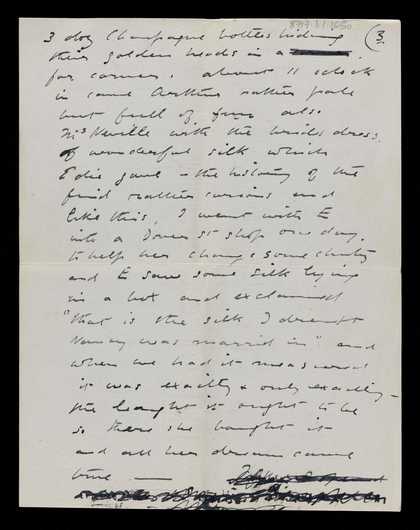 3
3 doz Champagne bottles hiding
their golden heads in a
far corner. about 11 o'clock
in came Arthur rather pale
but full of fun also
Mrs Neville with the brides dress,
of wonderful silk which
Edie gave - the history of the
find rather curious and
like this, I went with E
into a Dover St shop one day,
to help her change some
and E saw some silk lying
in a box and exclaimed
"that is the silk I dreamt
Nancy was married in" and
when we had it measured
it was exactly & only exactly -
the length it ought to be
so there she bought it
and all her dream came
true —